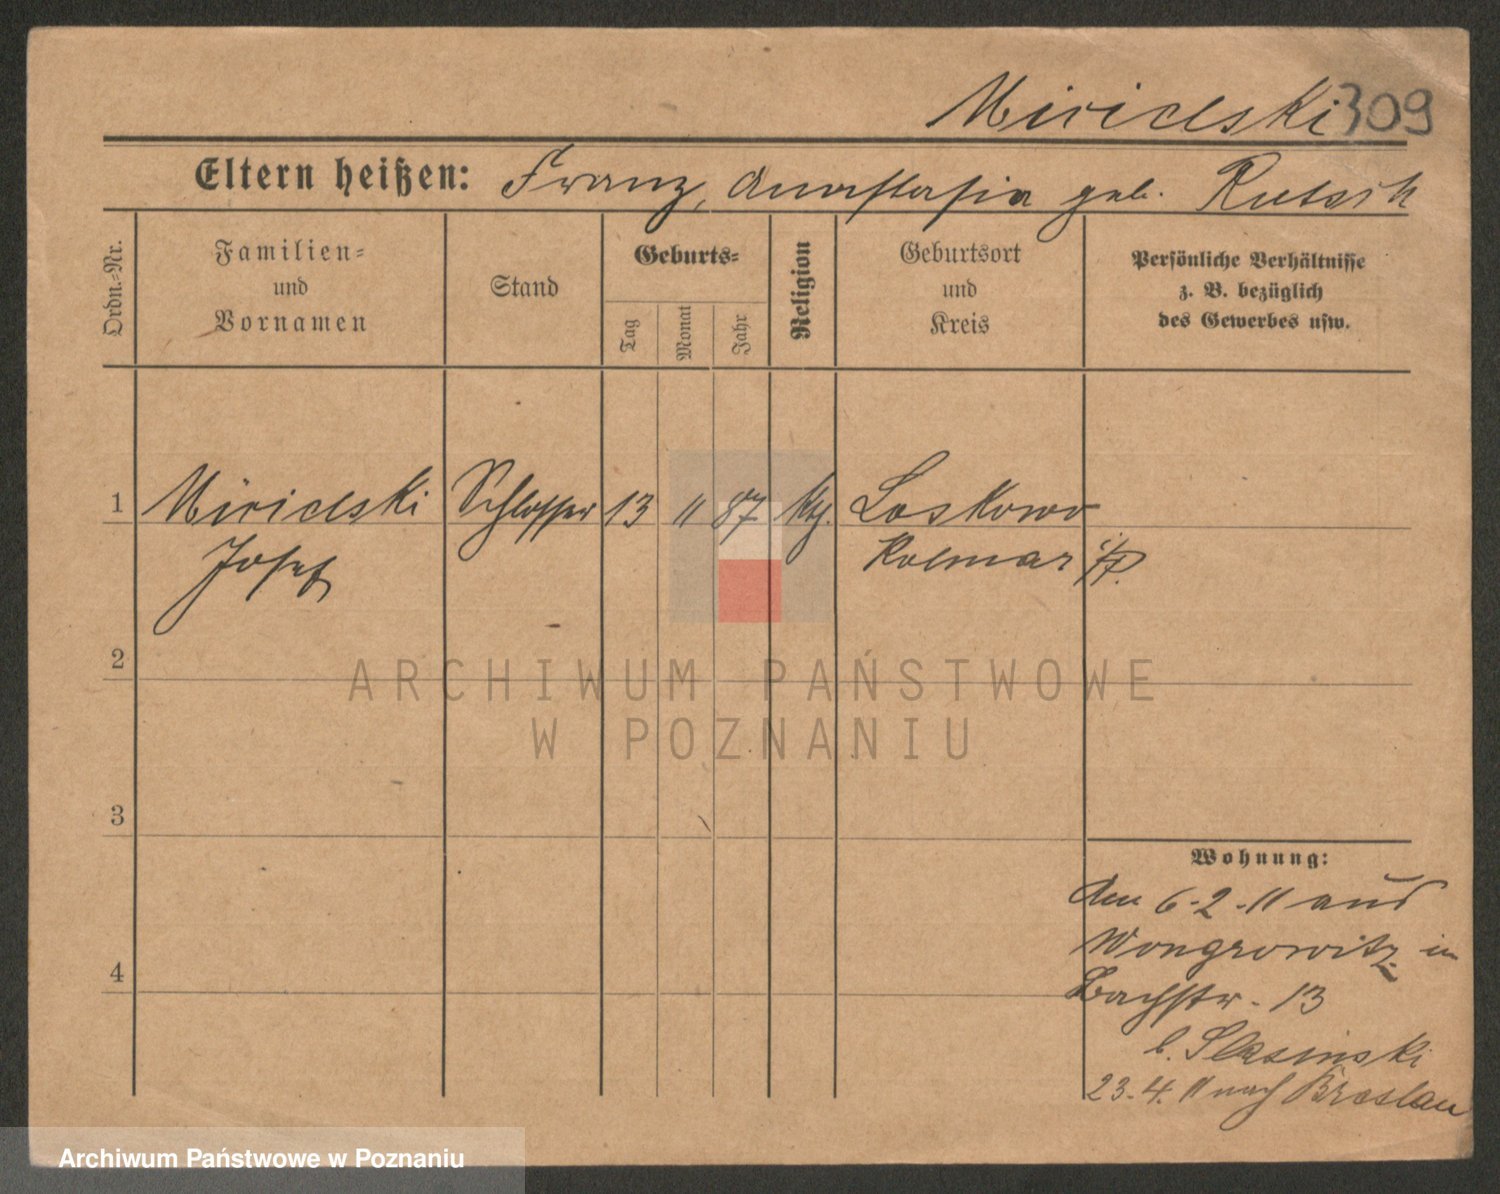 Miricelski 309
Eltern heißen: Franz, Anastasia geb.
Ordn.-Nr.
Familien-
und
Vornamen
Stand
Geburts-
Tag
Monat
Jahr
Religion
Geburtsort
und
Kreis
Persönliche Verhältnisse
z. B. bezüglich
des Gewerbes usw.
1 Miricelski Schlosser 13 11 87 kth. Laskowo
Josef Kolmar i/P.
2
ARCHIWUM PAŃSTWOWE
W POZNANIU
3
Wohnung:
Am 6.2.11 aus
Wongrowitz in
4
Bachstr. 13
b. Slasinski
23.4.11 nach Breslau
Archiwum Państwowe w Poznaniu